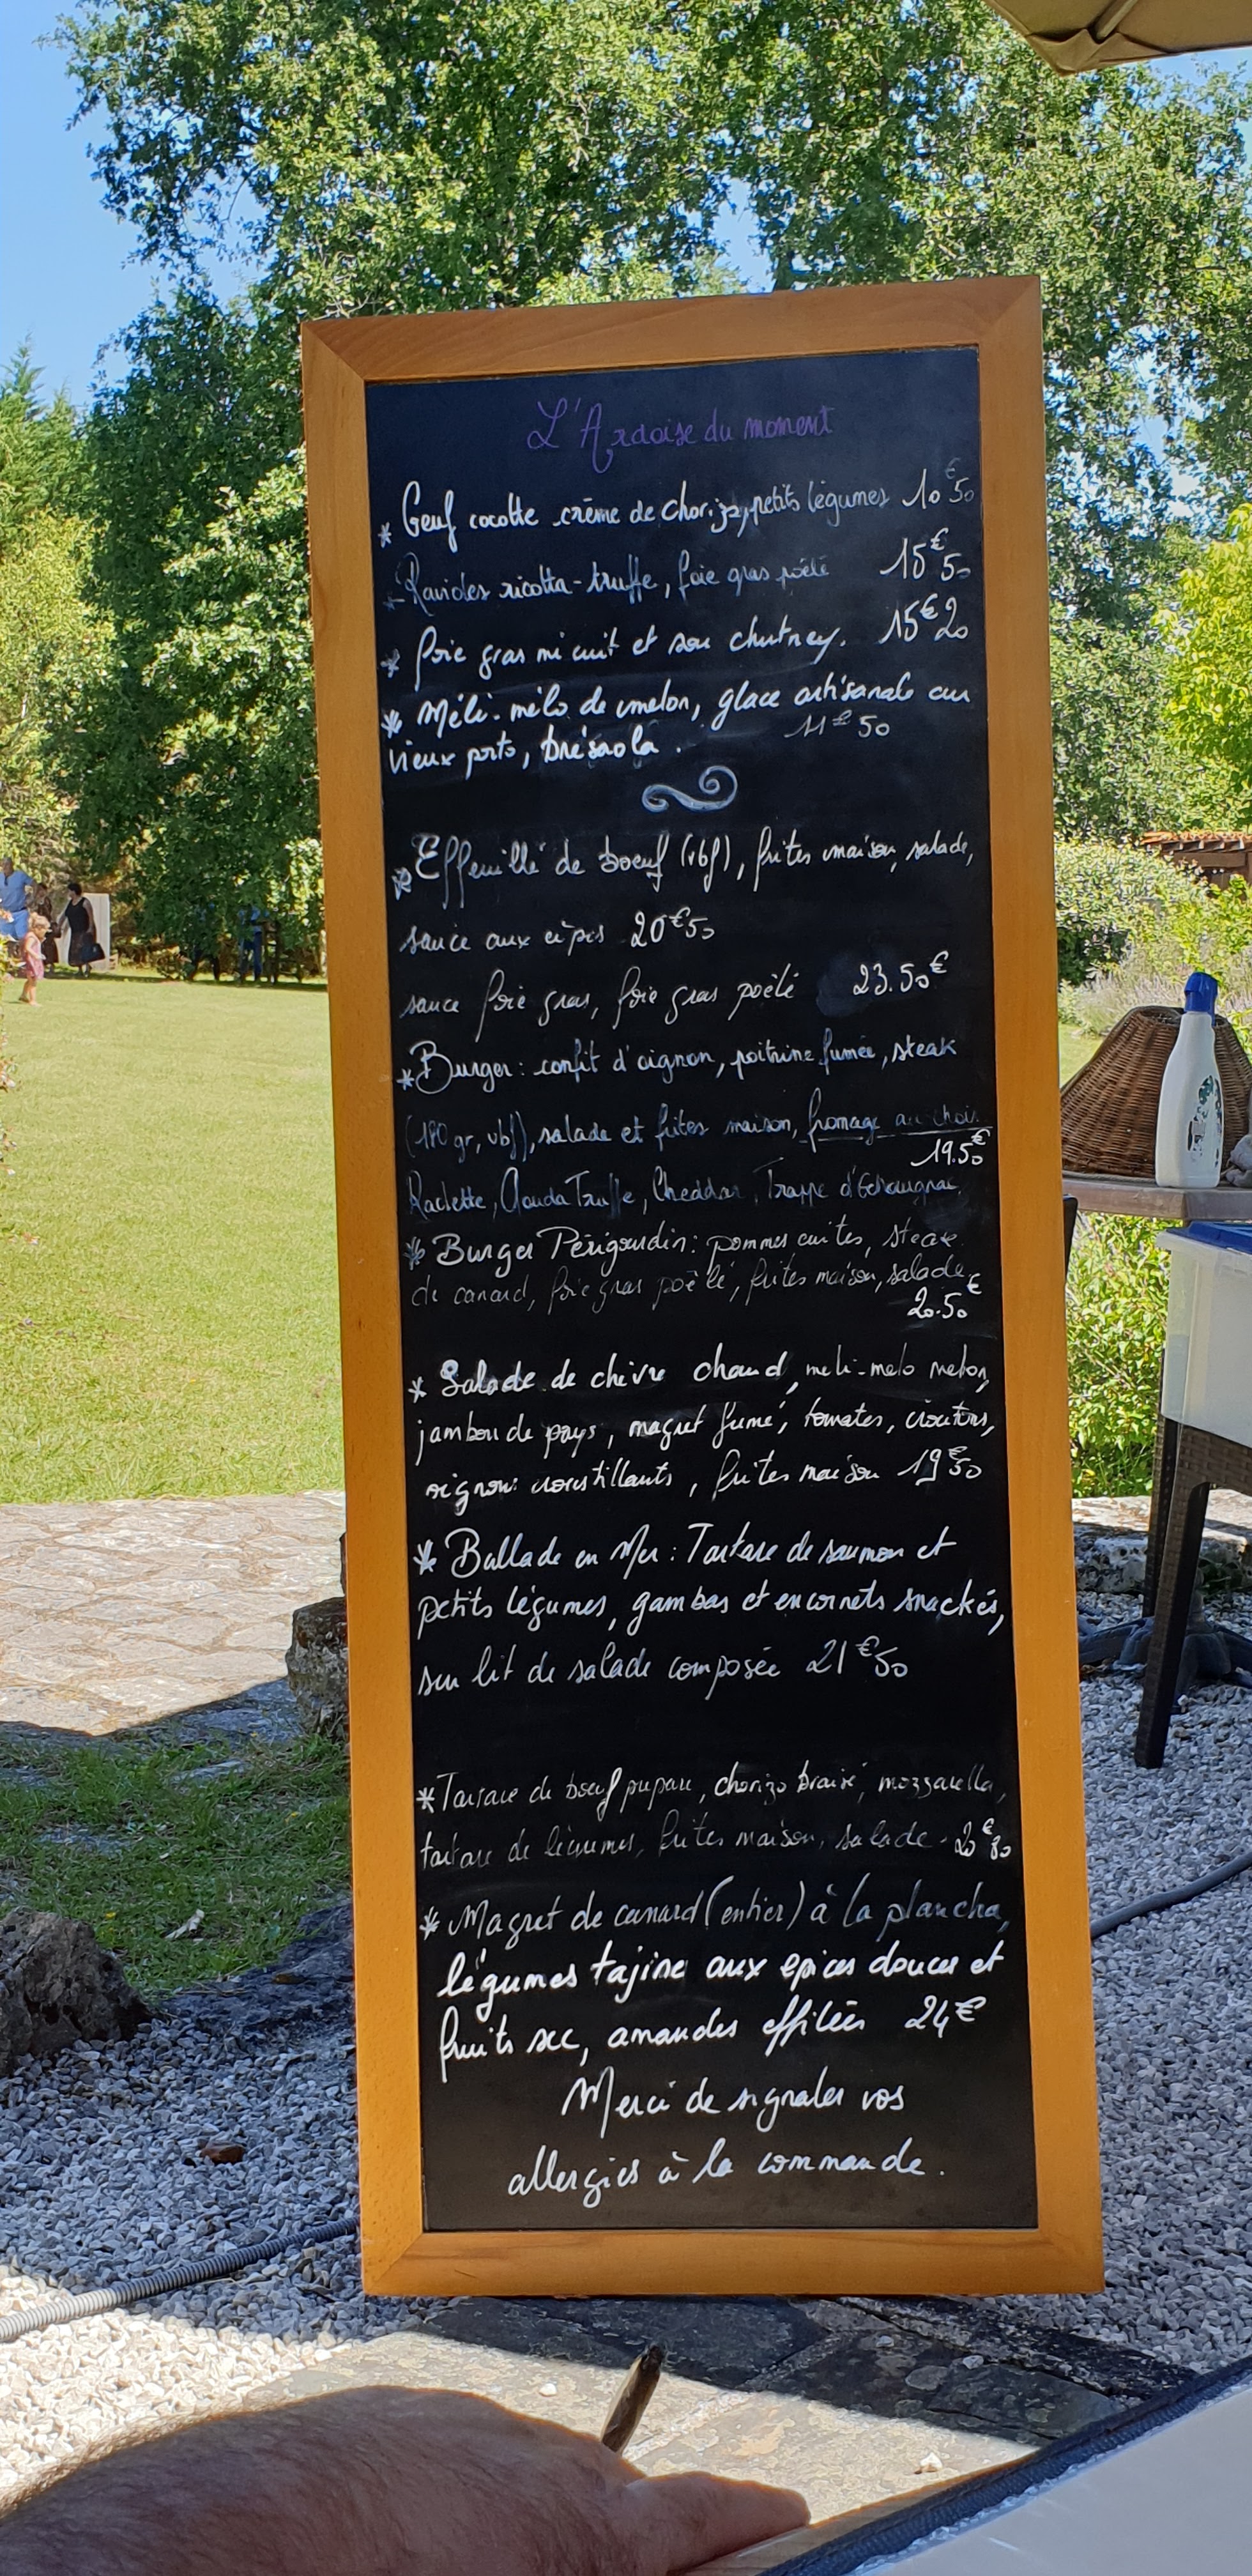 L'Ardoise du moment
* Oeuf cocotte crème de chorizo, petits légumes 10€50
* Ravioles ricotta-truffe, foie gras poêlé 15€50
* foie gras mi cuit et son chutney. 15€20
* Méli-mélo de melon, glace artisanale au
vieux porto, brésaola. 11€50
* Effeuillé de boeuf (vbf), frites maison, salade,
sauce aux cèpes 20€50
sauce foie gras, foie gras poêlé 23.50€
* Burger: confit d'oignon, poitrine fumée, steak
(180gr, vbf), salade et frites maison, fromage au choix
19.50€
Raclette, Gouda Truffe, Cheddar, Trappe d'Echourgnac.
* Burger Périgourdin: pommes cuites, steak
de canard, foie gras poêlé, frites maison, salade
20.50€
* Salade de chèvre chaud, meli-melo melon,
jambon de pays, magret fumé, tomates, croutons,
oignons croustillants, frites maison 19€50
* Ballade en Mer: Tartare de saumon et
petits légumes, gambas et encornets snackés,
sur lit de salade composée 21€50
* Tartare de boeuf, chorizo braisé, mozzarella,
tartare de légumes, frites maison, salade.
* Magret de canard (entier) à la plancha,
légumes tajine aux epices douces et
fruits sec, amandes effilées 24€
Merci de signaler vos
allergies à la commande.